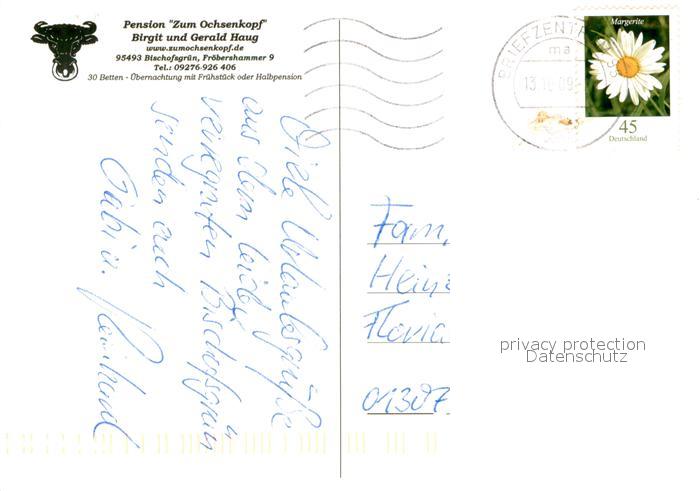 Pension "Zum Ochsenkopf"
Birgit und Gerald Haug
www.zumochsenkopf.de
95493 Bischofsgrün, Fröbershammer 9
Tel.: 09276-926 406
30 Betten - Übernachtung mit Frühstück oder Halbpension
Viele Urlaubsgrüße
aus dem leider
verregneten Bischofsgrün
senden euch
Gabi u. Reinhard
BRIEFZENTR
Margerite
45
Deutschland
Fam.
Heinz
01307
privacy protection
Datenschutz